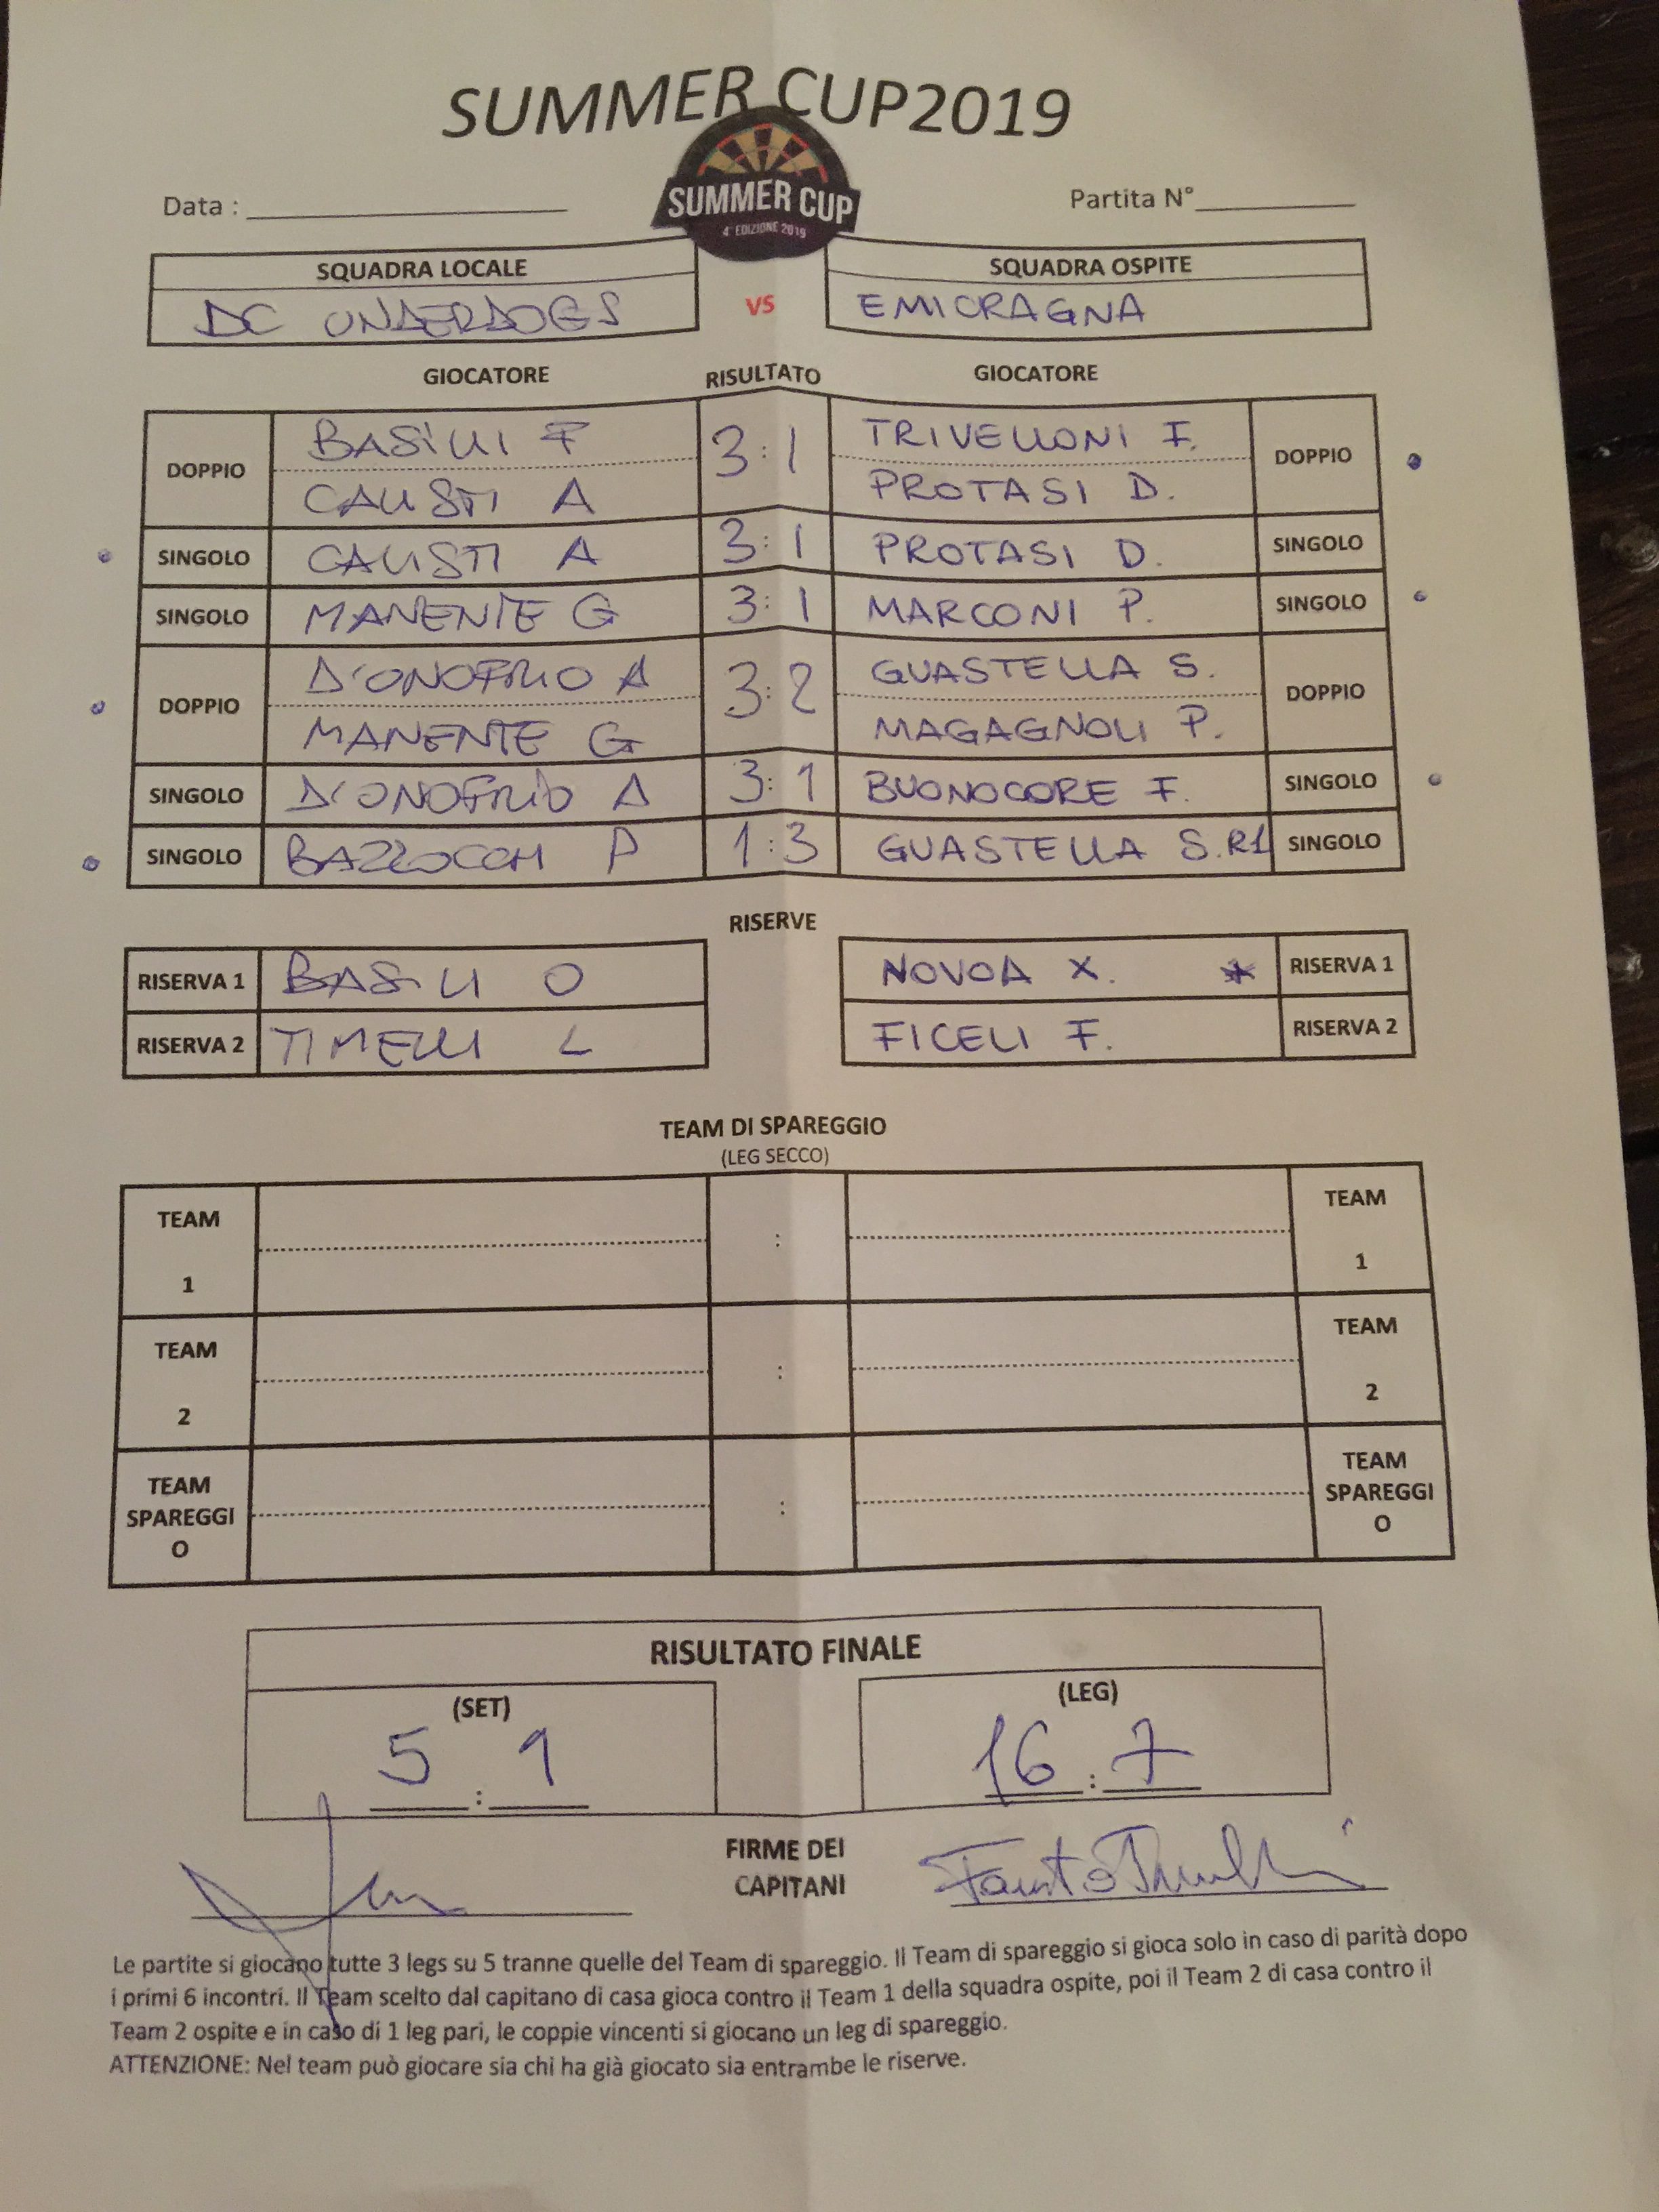 SUMMER CUP2019
SUMMER CUP
4° EDIZIONE 2019
Data : Partita N°
SQUADRA LOCALE SQUADRA OSPITE
DC UNDERDOGS VS EMICRAGNA
GIOCATORE RISULTATO GIOCATORE
DOPPIO BASILI F 3:1 TRIVELLONI F. DOPPIO
CALISTI A PROTASI D.
SINGOLO CALISTI A 3:1 PROTASI D. SINGOLO
SINGOLO MANENTE G 3:1 MARCONI P. SINGOLO
DOPPIO D'ONOFRIO A 3:2 GUASTELLA S. DOPPIO
MANENTE G MAGAGNOLI P.
SINGOLO D'ONOFRIO A 3:1 BUONOCORE F. SINGOLO
SINGOLO BAZZOCCHI P 1:3 GUASTELLA S.R1 SINGOLO
RISERVE
RISERVA 1 BASILI O NOVOA X. * RISERVA 1
RISERVA 2 TIMELLI L FICELI F. RISERVA 2
TEAM DI SPAREGGIO
(LEG SECCO)
TEAM : TEAM
1 1
TEAM : TEAM
2 2
TEAM : TEAM
SPAREGGI SPAREGGI
O O
RISULTATO FINALE
(SET) (LEG)
5 : 1 16 : 7
FIRME DEI
CAPITANI
Fausto
Le partite si giocano tutte 3 legs su 5 tranne quelle del Team di spareggio. Il Team di spareggio si gioca solo in caso di parità dopo
i primi 6 incontri. Il Team scelto dal capitano di casa gioca contro il Team 1 della squadra ospite, poi il Team 2 di casa contro il
Team 2 ospite e in caso di 1 leg pari, le coppie vincenti si giocano un leg di spareggio.
ATTENZIONE: Nel team può giocare sia chi ha già giocato sia entrambe le riserve.